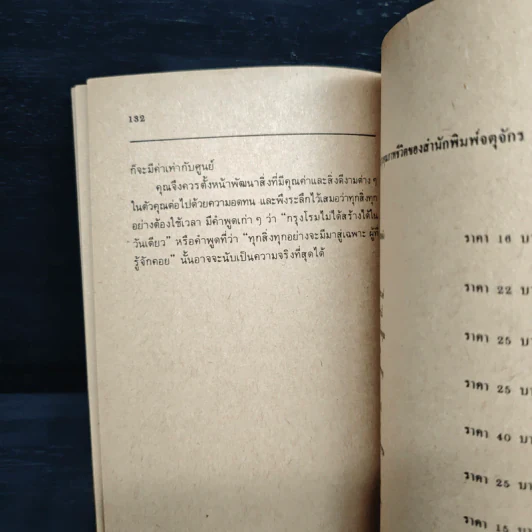 132
ก็จะมีค่าเท่ากับศูนย์
คุณจึงควรตั้งหน้าพัฒนาสิ่งที่มีคุณค่าและสิ่งดีงามต่าง ๆ
ในตัวคุณต่อไปด้วยความอดทน และพึงระลึกไว้เสมอว่าทุกสิ่งทุก
อย่างต้องใช้เวลา มีคำพูดเก่า ๆ ว่า “กรุงโรมไม่ได้สร้างได้ใน
วันเดียว” หรือคำพูดที่ว่า “ทุกสิ่งทุกอย่างจะมีมาสู่เฉพาะ ผู้ที่
รู้จักคอย” นั้นอาจจะนับเป็นความจริงที่สุดได้
ชีวิตของสำนักพิมพ์จตุจักร
ราคา 16
ราคา 22
ราคา 25
ราคา 25
ราคา 40
ราคา 25
ราคา 15